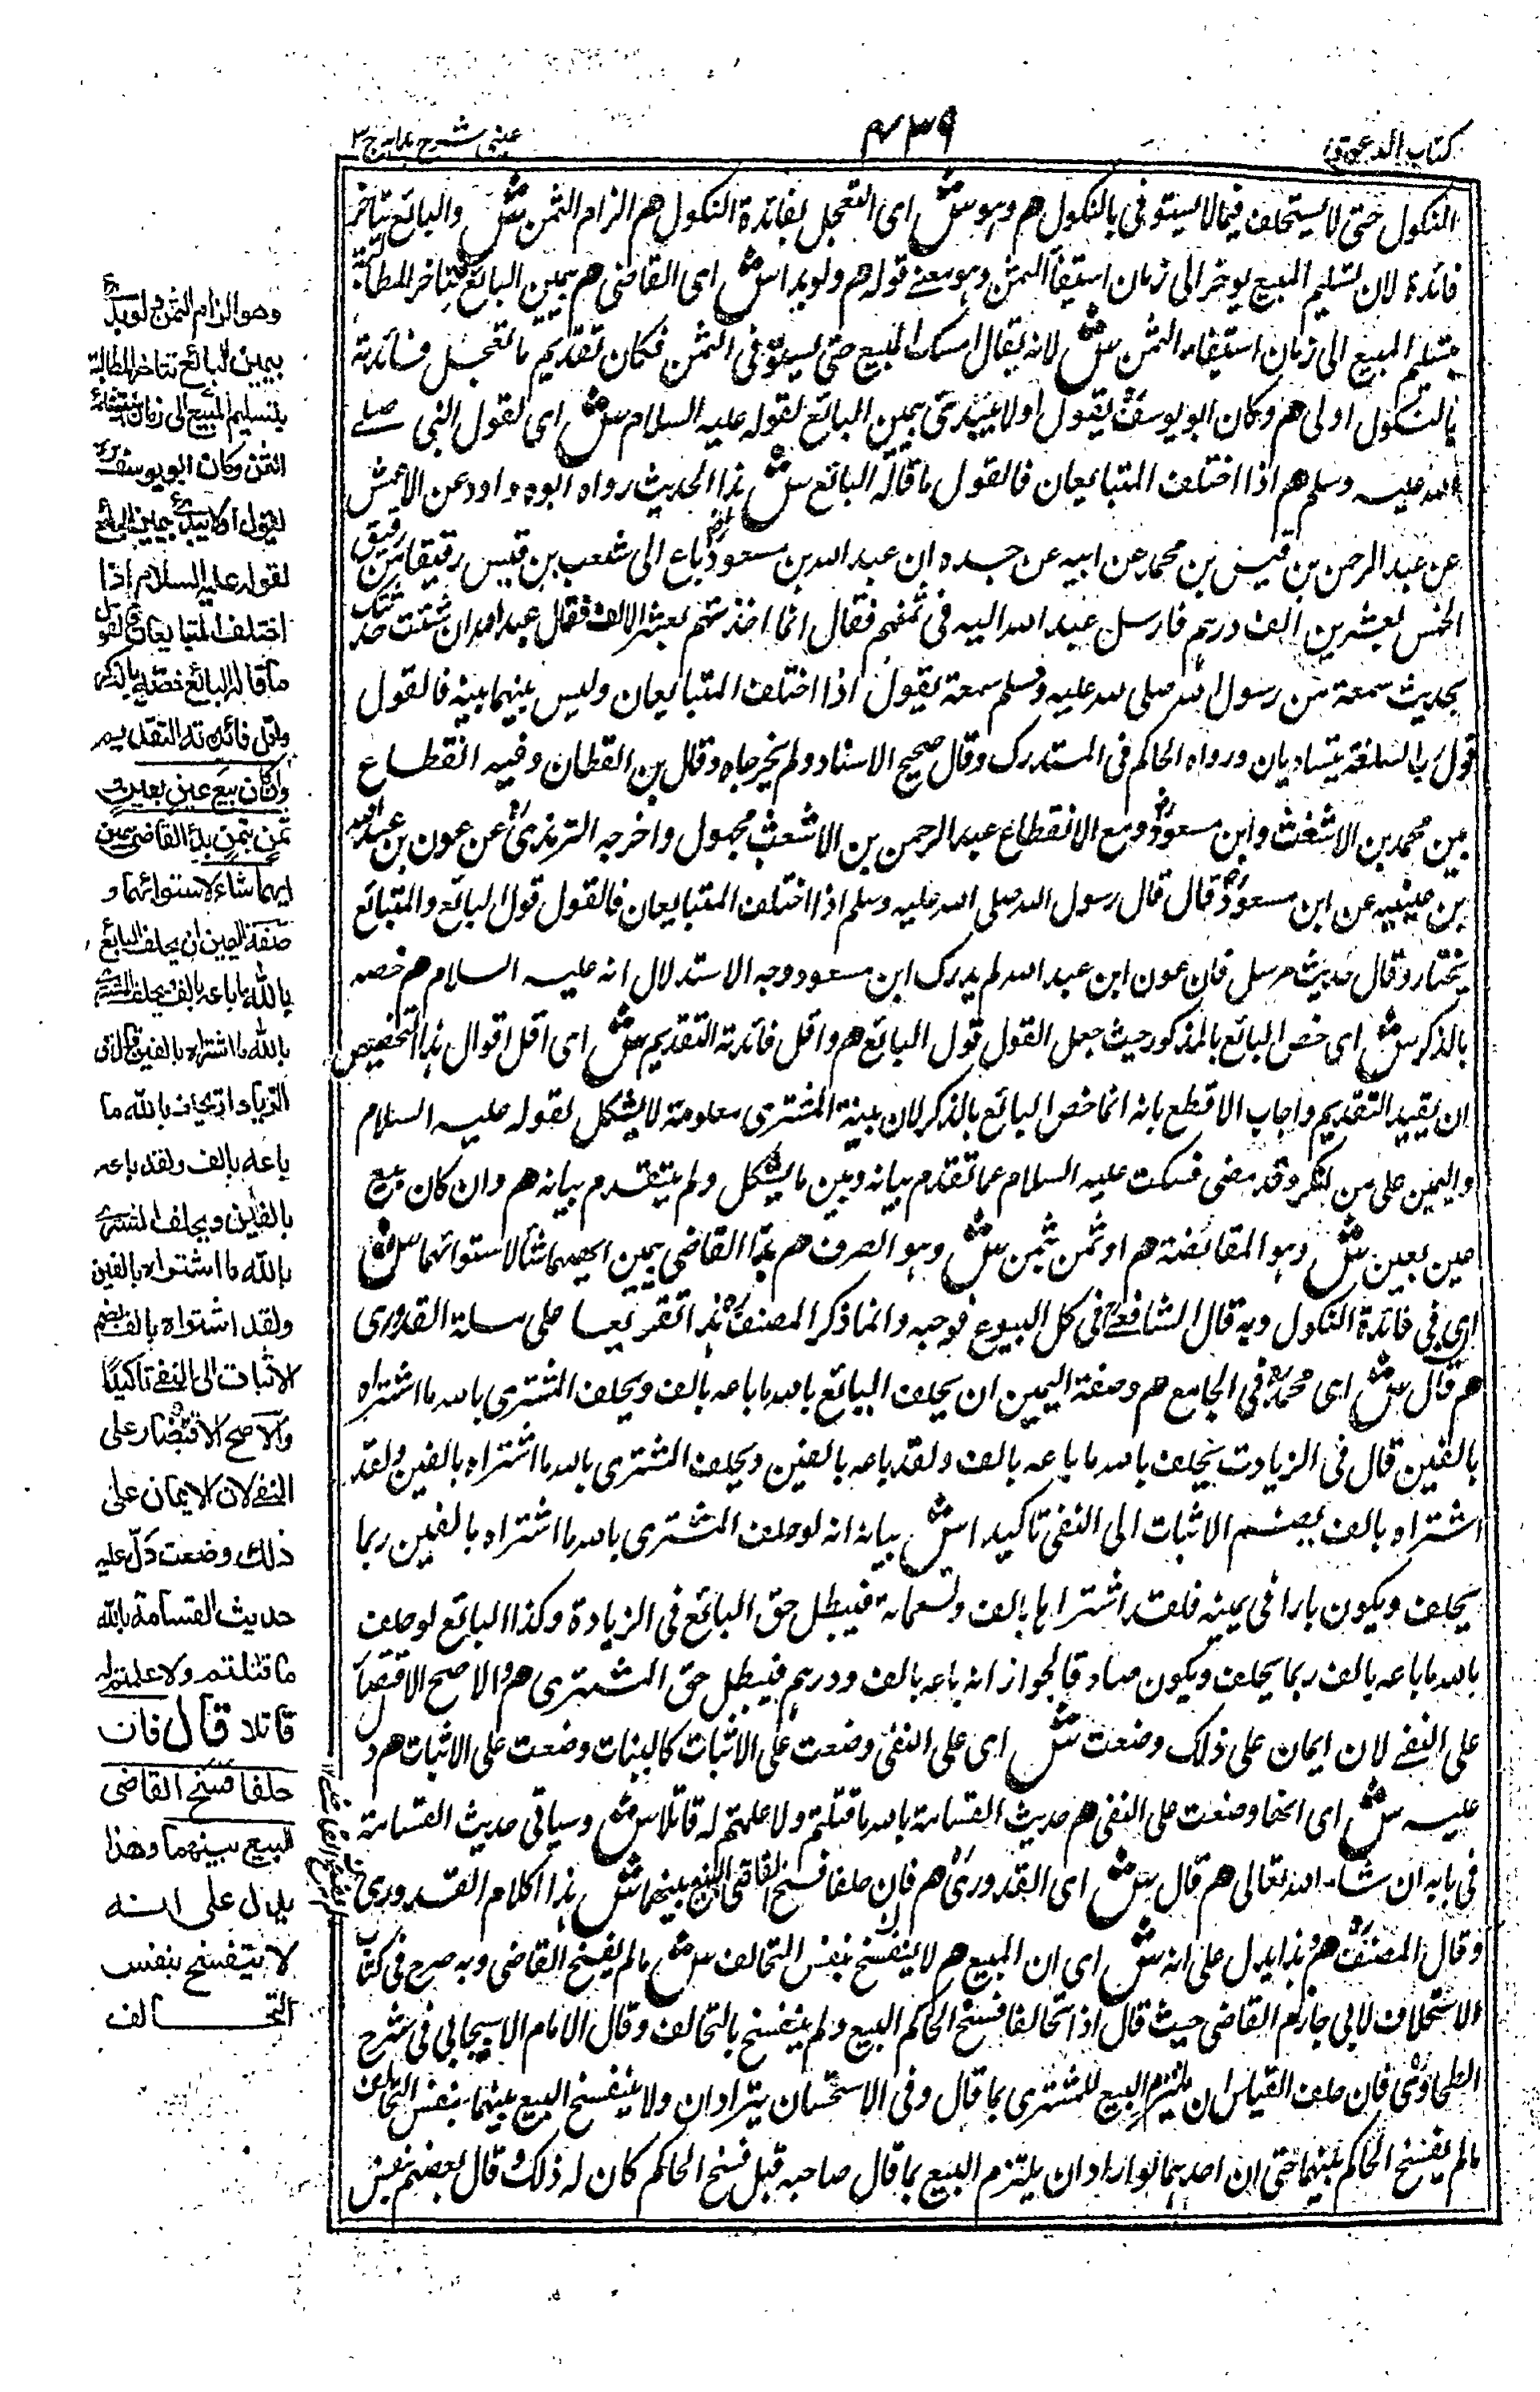 كتاب الدعوى
٤٣٩
عينى شرح هدايه ج ٣
النكول حتى لا يستحلف فيما لا يستوفى بالنكول هم وهو ش اى التعجل بفائدة النكول هم الزام الثمن ش والبائع تتاخر
فائدة لان تسليم المبيع يوخر الى زمان استيفاء الثمن وهو معنے قوله هم ولو بداش اى القاضى هم بيمين البائع تتاخر المطالبة
بتسليم المبيع الى زمان استيفاء الثمن ش لانه يقال امسك المبيع حتى يستوفى الثمن فكان تقديم ما تتعجل فائدته
بالنكول اولى هم وكان ابو يوسف يقول اولا يبدئ بيمين البائع لقوله عليه السلام ش اى لقول النبى صلے
الله عليه وسلم هم اذا اختلف المتبايعان فالقول ما قاله البائع ش هذا الحديث رواه ابو داود عن الاعمش
عن عبد الرحمن بن قيس بن محمد عن ابيه عن جده ان عبد الله بن مسعود باع الى شعب بن قيس رقيقا من رقيق
الخمس بعشرين الف درهم فارسل عبد الله اليه فى ثمنهم فقال انما اخذتهم بعشر الالف فقال عبد الله ان شئت حدثتك
بحديث سمعة من رسول الله صلى الله عليه وسلم سمعة يقول اذا اختلف المتبايعان وليس بينهما بينه فالقول
قول رب السلعة يتساديان ورواه الحاكم فى المستدرك وقال صحيح الاسناد ولم يخرجاه وقال بن القطان وفيه انقطاع
بين محمد بن الاشعث وابن مسعود ومع الانقطاع عبد الرحمن بن الاشعث مجهول واخرجه الترمذى عن عون بن عبد الله
بن عينيه عن ابن مسعود قال قال رسول الله صلى الله عليه وسلم اذا اختلف المتبايعان فالقول قول البائع والمتبائع
يختار وقال حديث مرسل فان عون ابن عبد الله لم يدرك ابن مسعود وجه الاستدلال انه عليه السلام هم خصه
بالذكر ش اى خص البائع بالمذكور حيث جعل القول قول البائع هم واقل فائدته التقديم ش اى اقل اقوال هذا التخصيص
ان يفيد التقديم واجاب الاقطع بانه انما خص البائع بالذكر لان بينة المشترى معلومة لا يشكل لقوله عليه السلام
واليمين على من انكر وقد مضى فسكت عليه السلام عما تقدم بيانه وبين ما يشكل ولم يتقدم بيانه هم وان كان بيع
عين بعين ش وهو المقايضة هم او ثمن بثمن ش وهو الصرف هم بدا القاضى بيمين ايهما شاء لاستوائهما ش
اى فى فائدة النكول وبه قال الشافعے فى كل البيوع فوجبه وانما ذكر المصنف هذا تفريعا على مسالة القدورى
هم قال ش اى محمد فى الجامع هم وصفة اليمين ان يحلف البائع بالله ما باعه بالف ويحلف المشترى بالله ما اشتراه
بالفين قال فى الزيادت يحلف بالله ما باعه بالف ولقد باعه بالفين ويحلف المشترى بالله ما اشتراه بالفين ولقد
اشتراه بالف يضم الاثبات الى النفى تاكيداش بيانه انه لو حلف المشترى بالله ما اشتراه بالفين ربما
يحلف ويكون بارا فى يمينه فلقد اشتراها بالف وتسعماىة فيبطل حق البائع فى الزيادة وكذا البائع لو حلف
بالله ما باعه بالف ربما يحلف ويكون صادقا لجواز انه باعه بالف ودرهم فيبطل حق المشترى هم والاصح الاقتصار
على النفے لان ايمان على ذلك وضعت ش اى على النفى وضعت على الاثبات كالبينات وضعت على الاثبات هم د
عليه ش اى انها وضعت على النفى هم حديث القسامة بالله ما قتلتم ولا علمتم له قاتلا ش وسياتى حديث القسامة
فى بابه ان شاء الله تعالى هم قال ش اى القدورى هم فان حلفا فسخ القاضى البيع بينهما ش هذا كلام القدورى
وقال المصنف هم وهذا يدل على انه ش اى ان المبيع هم لا ينفسخ بنفس التحالف ش مالم يفسخ القاضى وبه صرح فى كتاب
الاستحلاف لابى حازم القاضى حيث قال اذا تحالفا فسخ الحاكم البيع ولم ينفسخ بالتحالف وقال الامام الاسبيجابى فى شرح
الطحاوى فان حلف القياس ان يلتزم البيع للمشترى بما قال وفى الاستحسان يترادان ولا ينفسخ البيع بينهما بنفس التحالف
مالم يفسخ الحاكم بينهما حتى ان احدهما لو اراد ان يلتزم البيع بما قال صاحبه قبل فسخ الحاكم كان له ذلك وقال بعضهم بنفس
وهو الزام الثمن ولو بدئ
بيمين البائع تتاخر المطالبة
بتسليم المبيع الى زمان استيفاء
الثمن وكان ابو يوسف
يقول اولا يبدئ بيمين البائع
لقوله عليه السلام اذا
اختلف المتبايعان فالقول
ما قاله البائع خصّه بالذكر
واقل فائدته التقديم
وان كان بيع عين بعين او
ثمن بثمن بدأ القاضى بيمين
ايهما شاء لاستوائهما و
صفة اليمين ان يحلف البائع
بالله ما باعه بالف ويحلف المشترى
بالله ما اشتراه بالفين قال فى
الزيادات يحلف بالله ما
باعه بالف ولقد باعه
بالفين ويحلف المشترى
بالله ما اشتراه بالفين
ولقد اشتراه بالف يضم
الاثبات الى النفے تاكيدًا
والاصح الاقتصار على
النفے لان الايمان على
ذلك وضعت دلّ عليه
حديث القسامة بالله
ما قتلتم ولا علمتم له
قاتلا قال فان
حلفا فسخ القاضى
البيع بينهما وهذا
يدل على انه
لا ينفسخ بنفس
التحالف